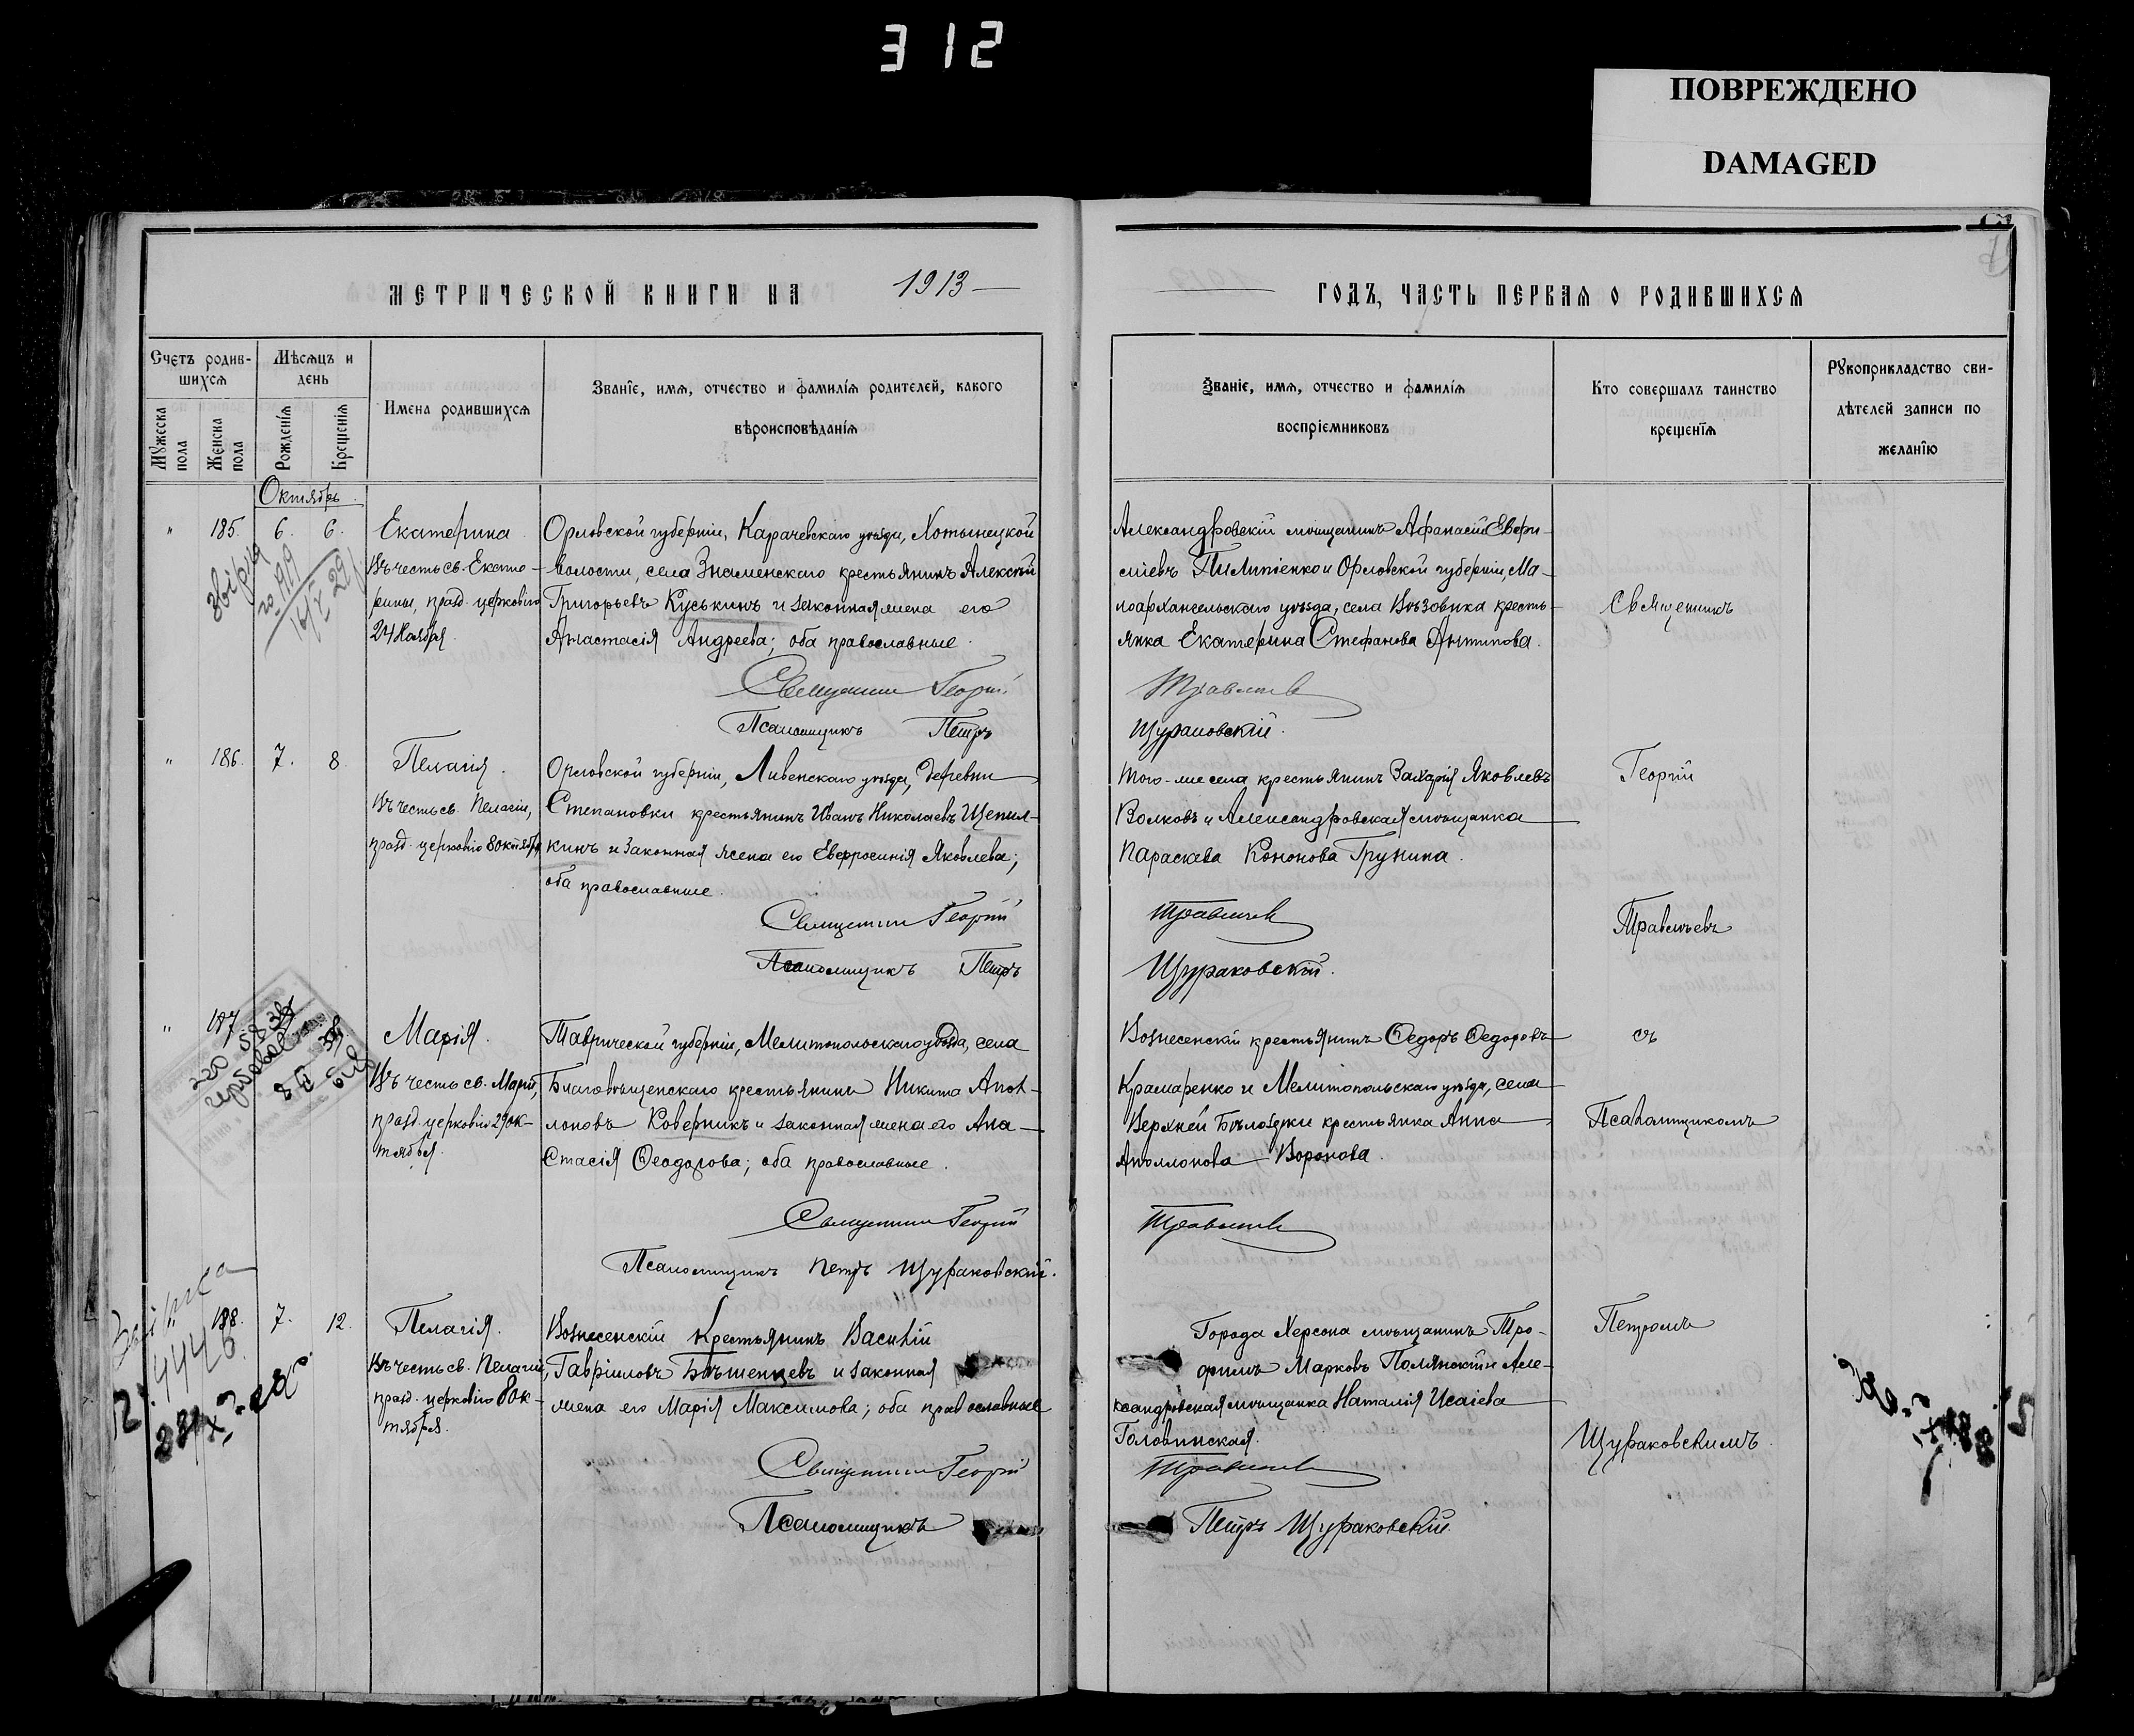 312
ПОВРЕЖДЕНО
DAMAGED
МЕТРИЧЕСКОЙ КНИГИ НА 1913
Счетъ родив-
шихся
Мѣсяцъ и
день
Мужеска
пола
Женска
пола
Рожденія
Крещенія
Имена родившихся
Званіе, имя, отчество и фамилія родителей, какого
вѣроисповѣданія
Октябрь
" 185. 6. 6. Екатерина.
Въ честь св. Екате-
рины, празд. церковію
24 Ноября.
Орловской губерніи, Карачевскаго уѣзда, Хотынецкой
волости, села Знаменскаго крестьянинъ Алексѣй
Григорьевъ Куськинъ и законная жена его
Анастасія Андреева; оба православные.
Священникъ Георгій
Псаломщикъ Петръ
" 186. 7. 8. Пелагія.
Въ честь св. Пелагіи,
празд. церковію 8 октября
Орловской губерніи, Ливенскаго уѣзда, деревни
Степановки крестьянинъ Иванъ Николаевъ Щепил-
кинъ и законная жена его Евфросинія Яковлева;
оба православные.
Священникъ Георгій
Псаломщикъ Петръ
" 187. Марія.
Въ честь св. Маріи,
празд. церковію 29 ок-
тября.
Таврической губерніи, Мелитопольскаго уѣзда, села
Благовѣщенскаго крестьянинъ Никита Апол-
лоновъ Коверникъ и законная жена его Ана-
стасія Ѳеодорова; оба православные.
Священникъ Георгій
Псаломщикъ Петръ Щураковскій.
188. 7. 12. Пелагія.
Въ честь св. Пелагіи,
празд. церковію 8 ок-
тября.
Вознесенскій крестьянинъ Василій
Гавріиловъ Бѣшенцевъ и законная
жена его Марія Максимова; оба православные
Священникъ Георгій
Псаломщикъ
4446
ГОДЪ, ЧАСТЬ ПЕРВАЯ О РОДИВШИХСЯ
Званіе, имя, отчество и фамилія
воспріемниковъ
Кто совершалъ таинство
крещенія
Рукоприкладство сви-
дѣтелей записи по
желанію
Александровскій мѣщанинъ Афанасій Евфи-
міевъ Пилипенко и Орловской губерніи, Ма-
лоархангельскаго уѣзда, села кресть-
янка Екатерина Стефанова Антипова.
Травлѣевъ
Щураковскій.
Того-же села крестьянинъ Захарія Яковлевъ
Волковъ и Александровская мѣщанка
Параскева Кононова Грунина.
Травлѣевъ
Щураковскій.
Вознесенскій крестьянинъ Ѳедоръ Ѳедоровъ
Крамаренко и Мелитопольскаго уѣзда, села
Верхней Бѣлозерки крестьянка Анна
Аполлонова Воронова.
Травлѣевъ
Города Херсона мѣщанинъ Тро-
фимъ Марковъ Полянскій и Але-
ксандровская мѣщанка Наталія Исаіева
Головинская.
Травлѣевъ
Петръ Щураковскій
Священникъ
Георгій
Травлѣевъ
съ
Псаломщикомъ
Петромъ
Щураковскимъ.